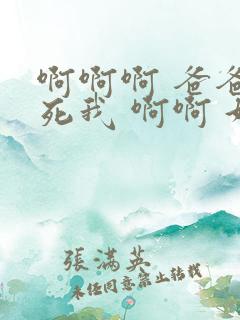 啊啊啊 爸爸
死我 啊啊
張满英
未经同意禁止转载